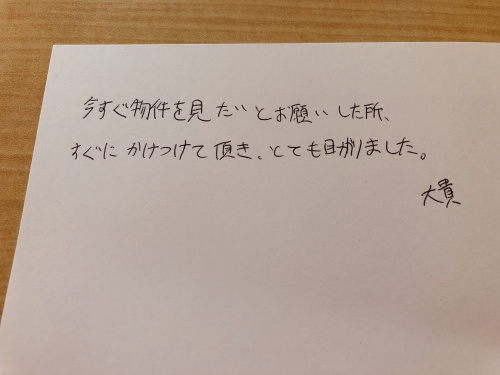 今すぐ物件を見たいとお願いした所、
すぐにかけつけて頂き、とても目がりました。
大貴